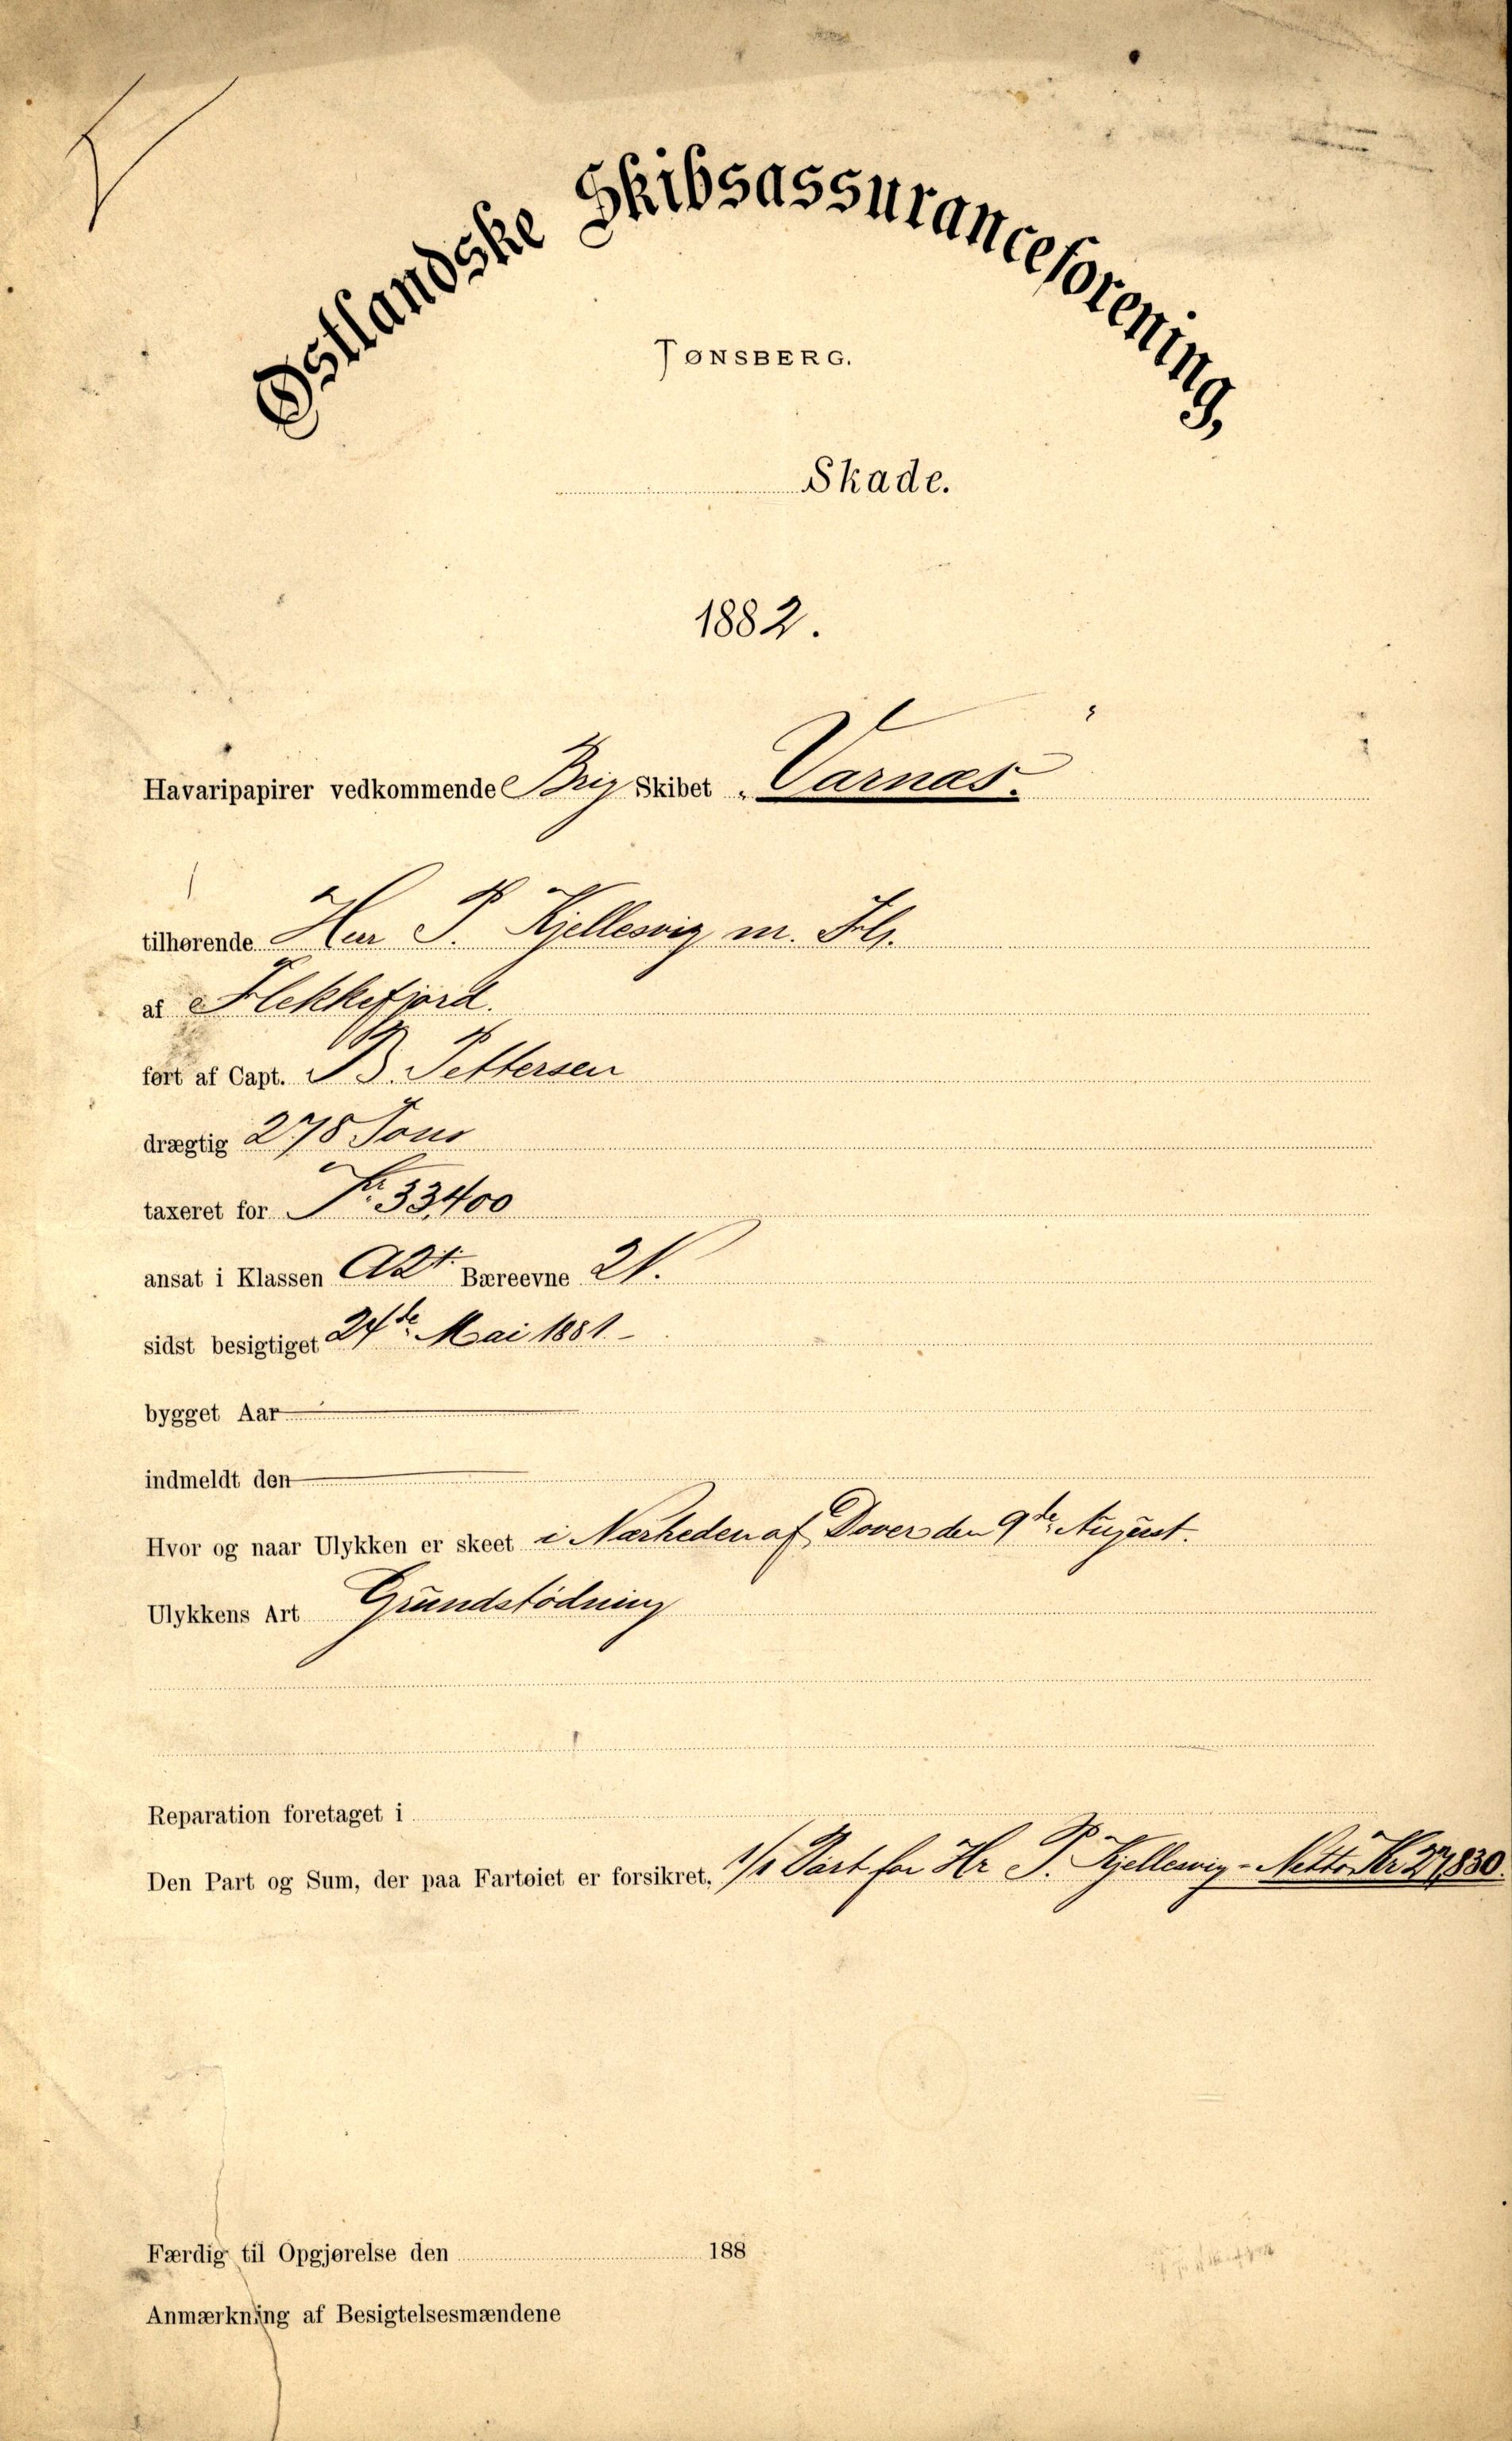 Østlandske Skibsassuranceforening,
TØNSBERG.
Skade.
1882.
Havaripapirer vedkommende Brig Skibet „Varnæs."
tilhørende Herr P. Kjellesvig m. Fl.
af Flekkefjord.
ført af Capt. B. Pettersen
drægtig 278 Tons
taxeret for Kr. 33,400
ansat i Klassen A2† Bæreevne
sidst besigtiget 24de Mai 1881.-
bygget Aar
indmeldt den
Hvor og naar Ulykken er skeet i Nærheden af Dover den 9de August.
Ulykkens Art Grundstödning
Reparation foretaget i
Den Part og Sum, der paa Fartøiet er forsikret, 1/1 Part for Hr P. Kjellesvig - Netto Kr 27,830.
Færdig til Opgjørelse den 188
Anmærkning af Besigtelsesmændene